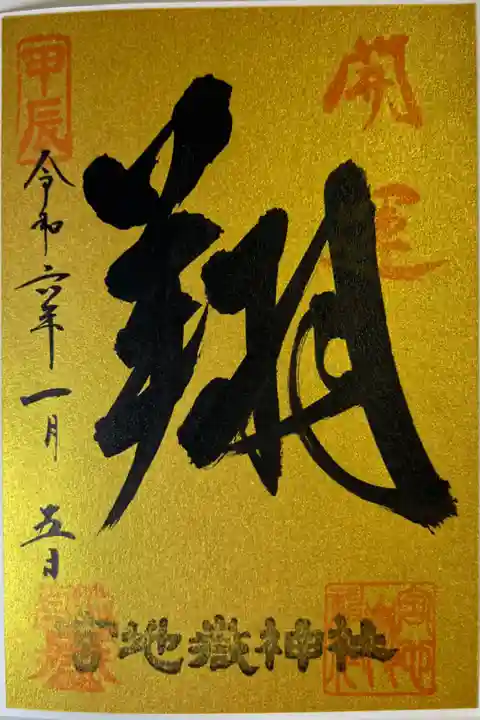 開運
翔
甲辰
令和六年一月五日
宮地嶽神社